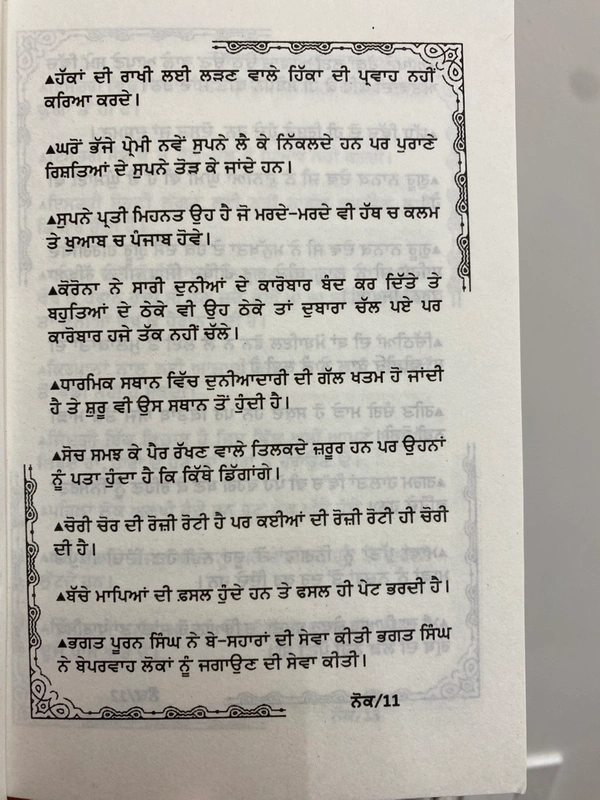 ▲ਹੱਕਾਂ ਦੀ ਰਾਖੀ ਲਈ ਲੜਣ ਵਾਲੇ ਹਿੱਕਾ ਦੀ ਪ੍ਰਵਾਹ ਨਹੀਂ
ਕਰਿਆ ਕਰਦੇ।
▲ਘਰੋਂ ਭੱਜੇ ਪ੍ਰੇਮੀ ਨਵੇਂ ਸੁਪਨੇ ਲੈ ਕੇ ਨਿੱਕਲਦੇ ਹਨ ਪਰ ਪੁਰਾਣੇ
ਰਿਸ਼ਤਿਆਂ ਦੇ ਸੁਪਨੇ ਤੋੜ ਕੇ ਜਾਂਦੇ ਹਨ।
▲ਸੁਪਨੇ ਪ੍ਰਤੀ ਮਿਹਨਤ ਉਹ ਹੈ ਜੋ ਮਰਦੇ-ਮਰਦੇ ਵੀ ਹੱਥ ਚ ਕਲਮ
ਤੇ ਖੁਆਬ ਚ ਪੰਜਾਬ ਹੋਵੇ।
▲ਕੋਰੋਨਾ ਨੇ ਸਾਰੀ ਦੁਨੀਆਂ ਦੇ ਕਾਰੋਬਾਰ ਬੰਦ ਕਰ ਦਿੱਤੇ ਤੇ
ਬਹੁਤਿਆਂ ਦੇ ਠੇਕੇ ਵੀ ਉਹ ਠੇਕੇ ਤਾਂ ਦੁਬਾਰਾ ਚੱਲ ਪਏ ਪਰ
ਕਾਰੋਬਾਰ ਹਜੇ ਤੱਕ ਨਹੀਂ ਚੱਲੇ।
▲ਧਾਰਮਿਕ ਸਥਾਨ ਵਿੱਚ ਦੁਨੀਆਦਾਰੀ ਦੀ ਗੱਲ ਖਤਮ ਹੋ ਜਾਂਦੀ
ਹੈ ਤੇ ਸ਼ੁਰੂ ਵੀ ਉਸ ਸਥਾਨ ਤੋਂ ਹੁੰਦੀ ਹੈ।
▲ਸੋਚ ਸਮਝ ਕੇ ਪੈਰ ਰੱਖਣ ਵਾਲੇ ਤਿਲਕਦੇ ਜ਼ਰੂਰ ਹਨ ਪਰ ਉਹਨਾਂ
ਨੂੰ ਪਤਾ ਹੁੰਦਾ ਹੈ ਕਿ ਕਿੱਥੇ ਡਿੱਗਾਂਗੇ।
▲ਚੋਰੀ ਚੋਰ ਦੀ ਰੋਜ਼ੀ ਰੋਟੀ ਹੈ ਪਰ ਕਈਆਂ ਦੀ ਰੋਜ਼ੀ ਰੋਟੀ ਹੀ ਚੋਰੀ
ਦੀ ਹੈ।
▲ਬੱਚੇ ਮਾਪਿਆਂ ਦੀ ਫ਼ਸਲ ਹੁੰਦੇ ਹਨ ਤੇ ਫਸਲ ਹੀ ਪੇਟ ਭਰਦੀ ਹੈ।
▲ਭਗਤ ਪੂਰਨ ਸਿੰਘ ਨੇ ਬੇ-ਸਹਾਰਾਂ ਦੀ ਸੇਵਾ ਕੀਤੀ ਭਗਤ ਸਿੰਘ
ਨੇ ਬੇਪਰਵਾਹ ਲੋਕਾਂ ਨੂੰ ਜਗਾਉਣ ਦੀ ਸੇਵਾ ਕੀਤੀ।
ਨੋਕ/11